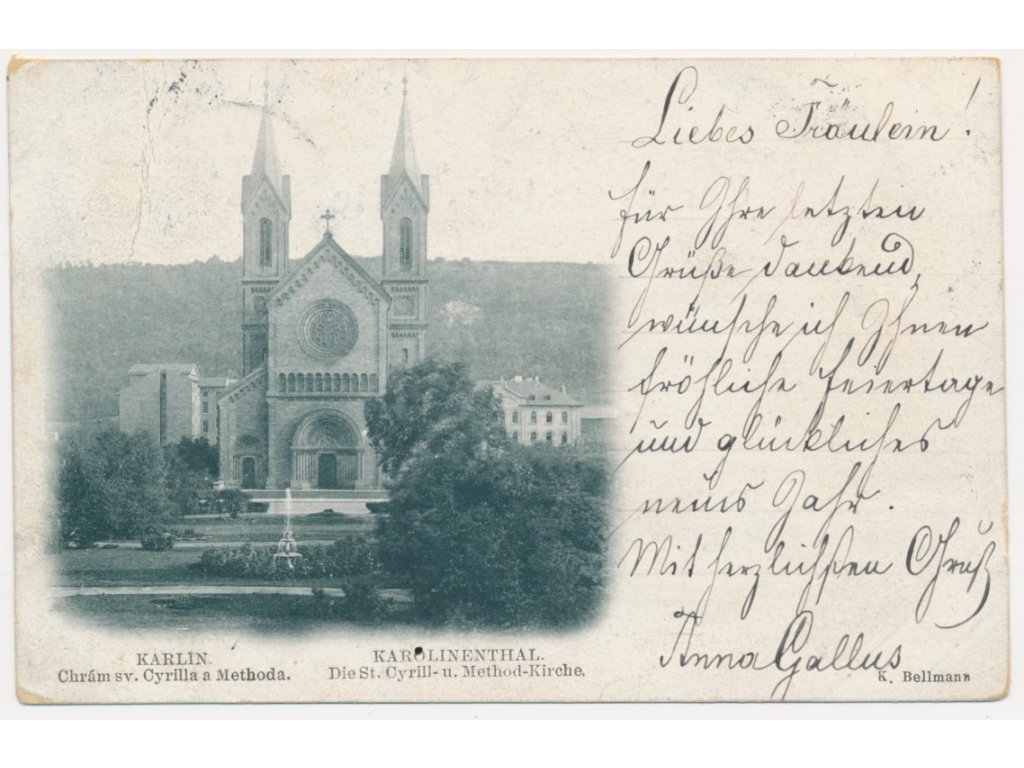 Liebes Fräulein!
für Ihre letzten
Grüße dankend,
wünsche ich Ihnen
fröhliche Feiertage
und glückliches
neues Jahr.
Mit herzlichsten Gruß
Anna Gallus
KARLÍN.
Chrám sv. Cyrilla a Methoda.
KAROLINENTHAL.
Die St. Cyrill- u. Method-Kirche.
K. Bellmann